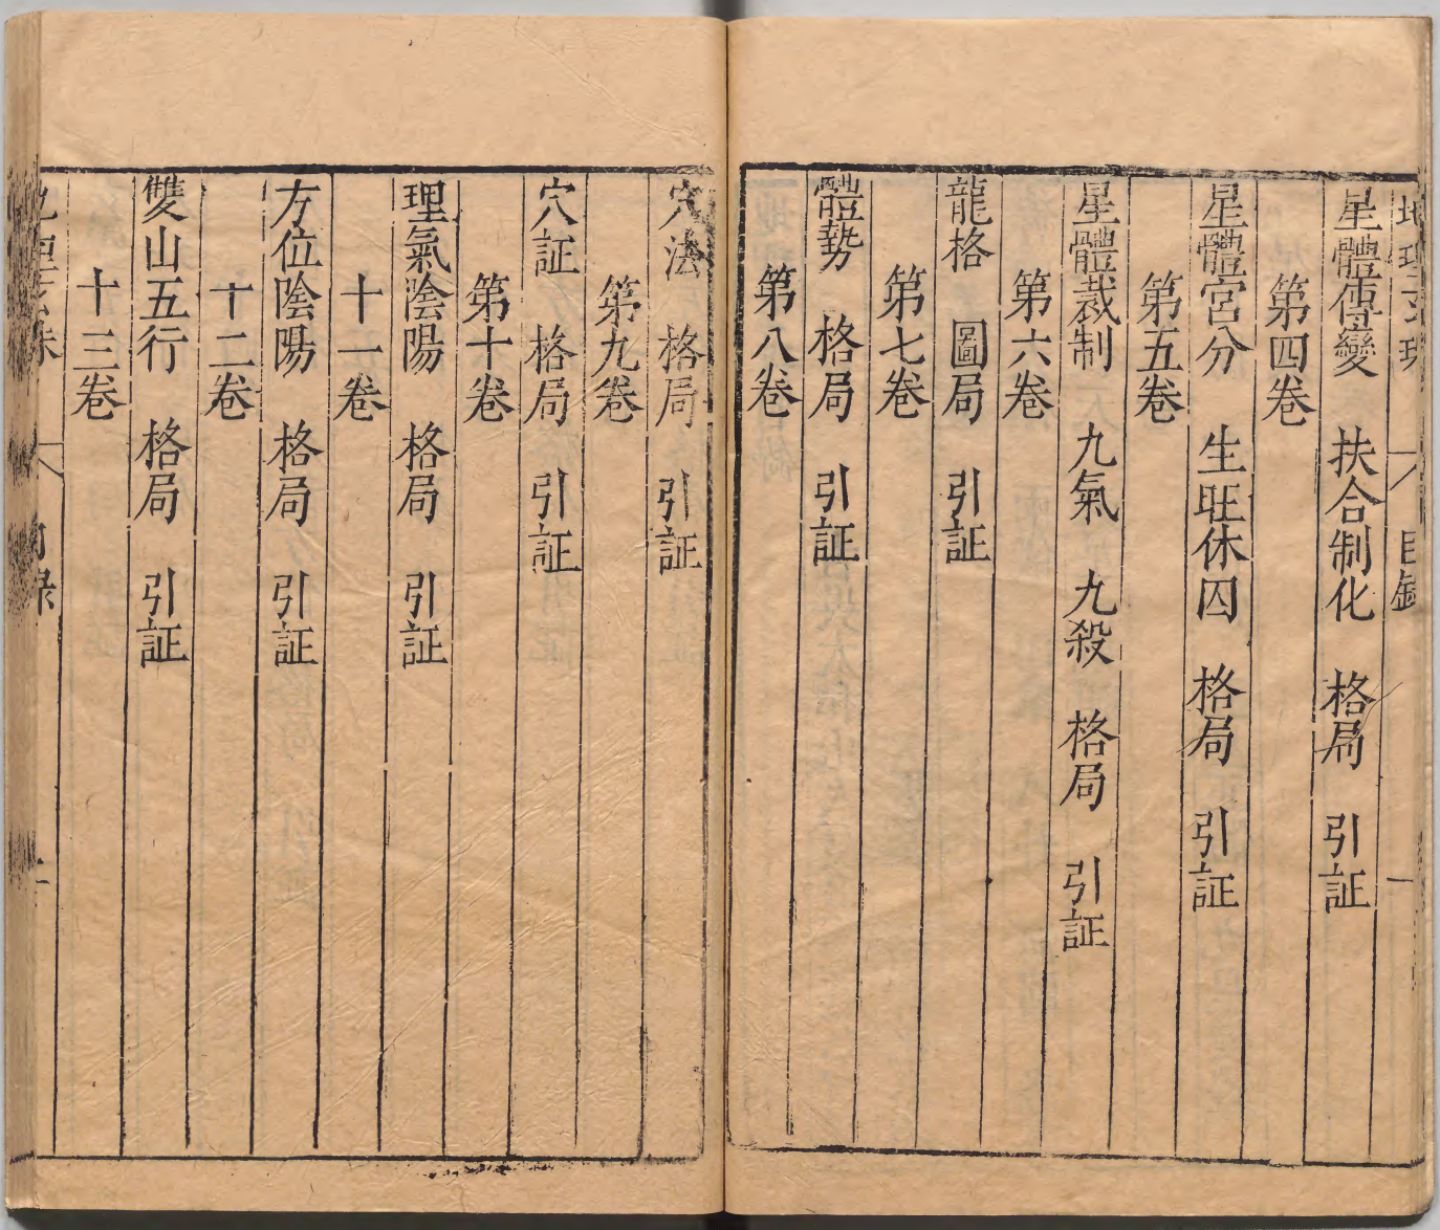 星體傳變 扶合制化 格局 引証
第四卷
星體宮分 生旺休囚 格局 引証
第五卷
星體裁制 九氣 九殺 格局 引証
第六卷
龍格 圖局 引証
第七卷
體勢 格局 引証
第八卷
穴法 格局 引証
第九卷
穴証 格局 引証
第十卷
理氣陰陽 格局 引証
十一卷
方位陰陽 格局 引証
十二卷
雙山五行 格局 引証
十三卷